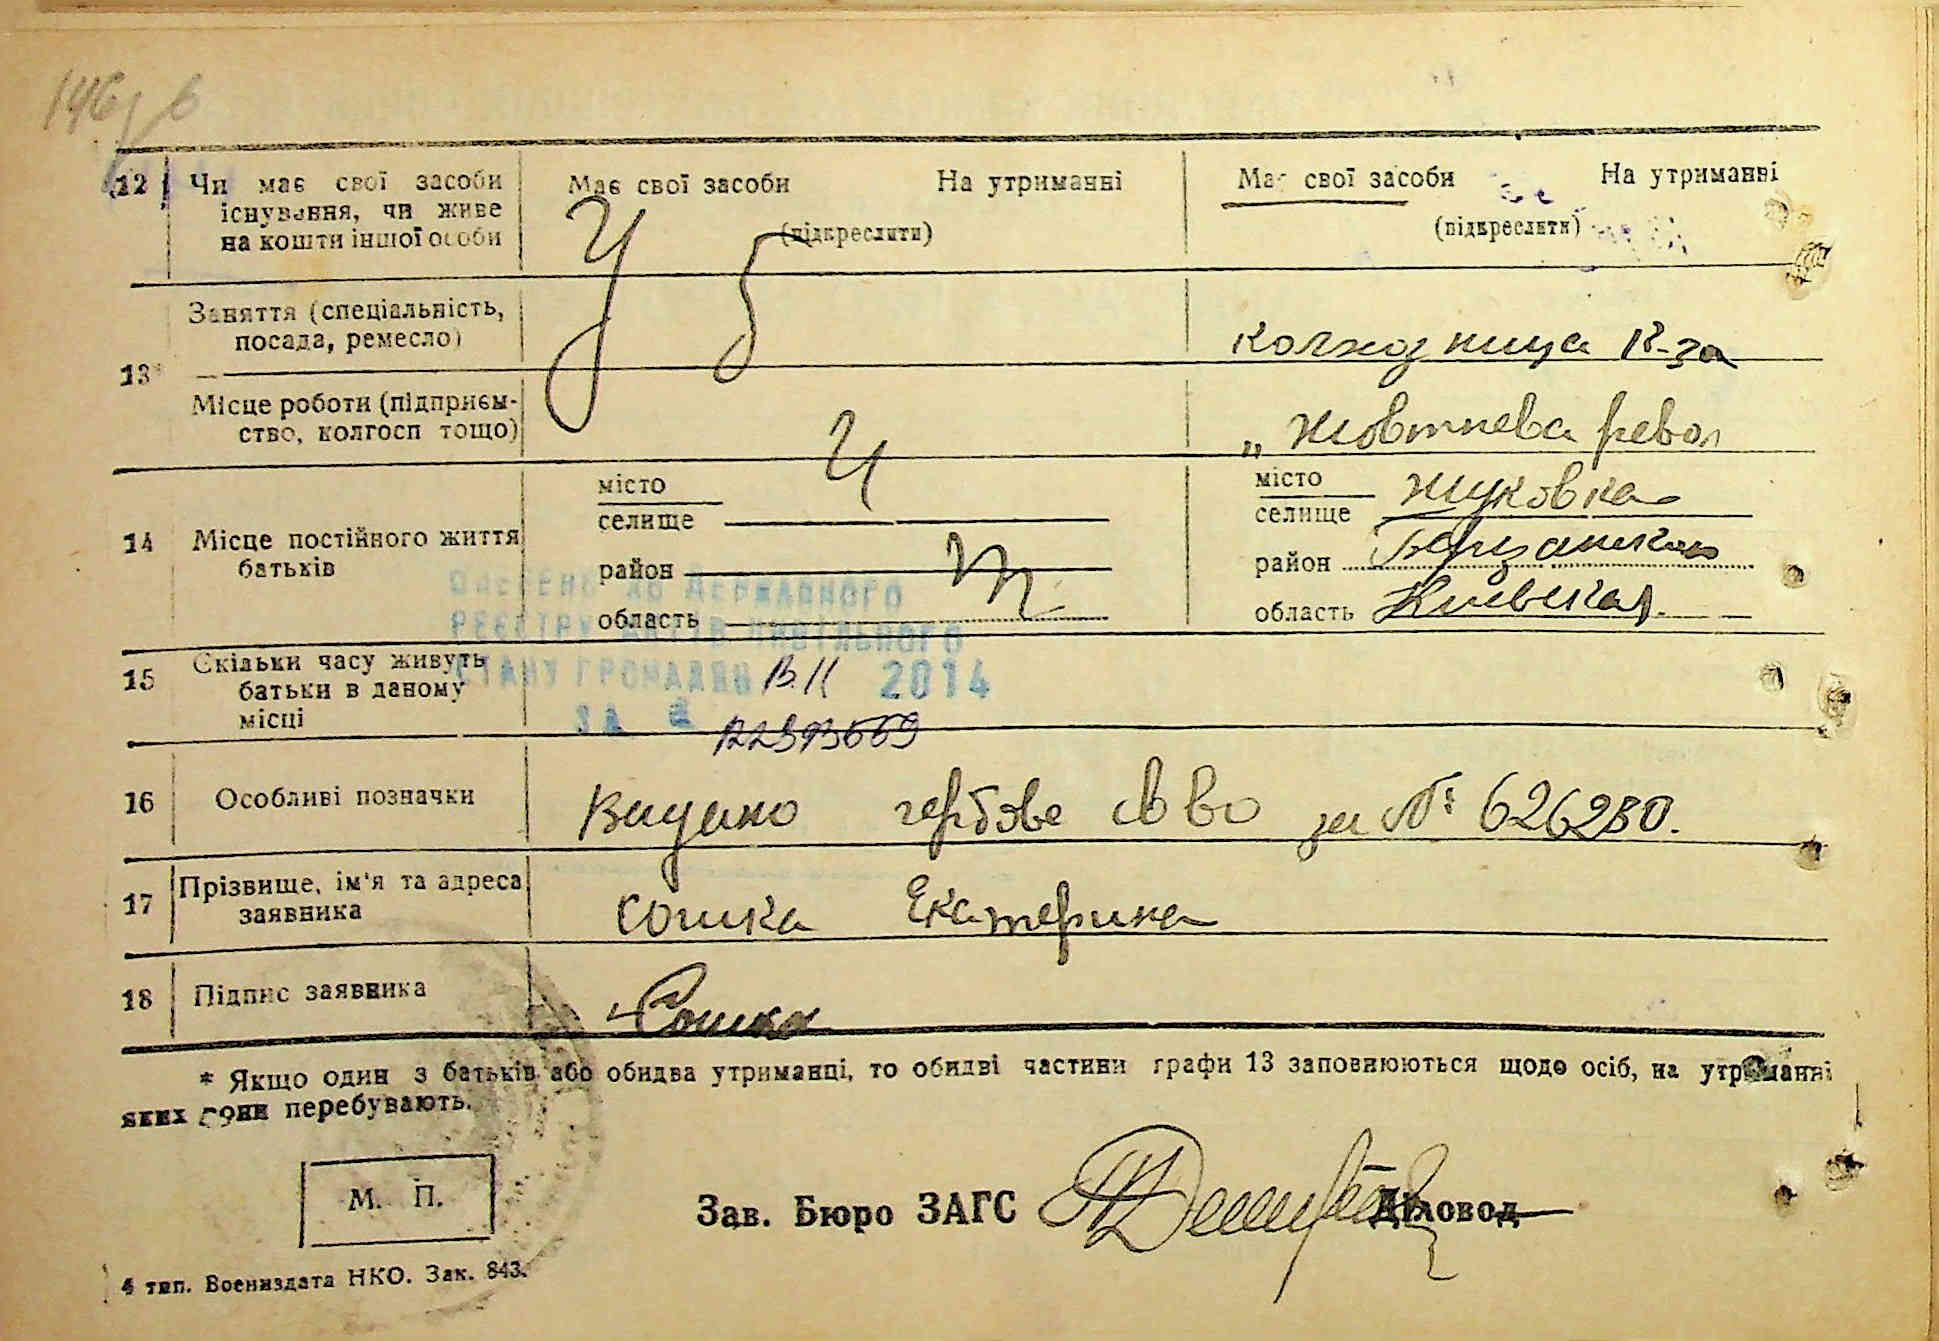 146
12 Чи має свої засоби існування, чи живе на кошти іншої особи
Має свої засоби На утриманні
(підкреслити)
Має свої засоби На утриманні
(підкреслити)
13* Заняття (спеціальність, посада, ремесло)
колхозница К-за
Місце роботи (підприєм-
ство, колгосп тощо)
„Жовтнева револ
14 Місце постійного життя батьків
місто
селище
район
область
місто
селище Жуковка
район
область Киевская
15 Скільки часу живуть батьки в даному місці
ВНЕСЕНО ДО ДЕРЖАВНОГО
РЕЄСТРУ АКТІВ ЦИВІЛЬНОГО
СТАНУ ГРОМАДЯН 2014
ЗА №
16 Особливі позначки
Видано гербове св во за № 626280.
17 Прізвище, ім'я та адреса заявника
Сошка Екатерина
18 Підпис заявника
Сошка
* Якщо один з батьків або обидва утриманці, то обидві частини графи 13 заповнюються щодо осіб, на утриманні
яких вони перебувають.
М. П.
Зав. Бюро ЗАГС Діловод
4 тип. Воениздата НКО. Зак. 843.